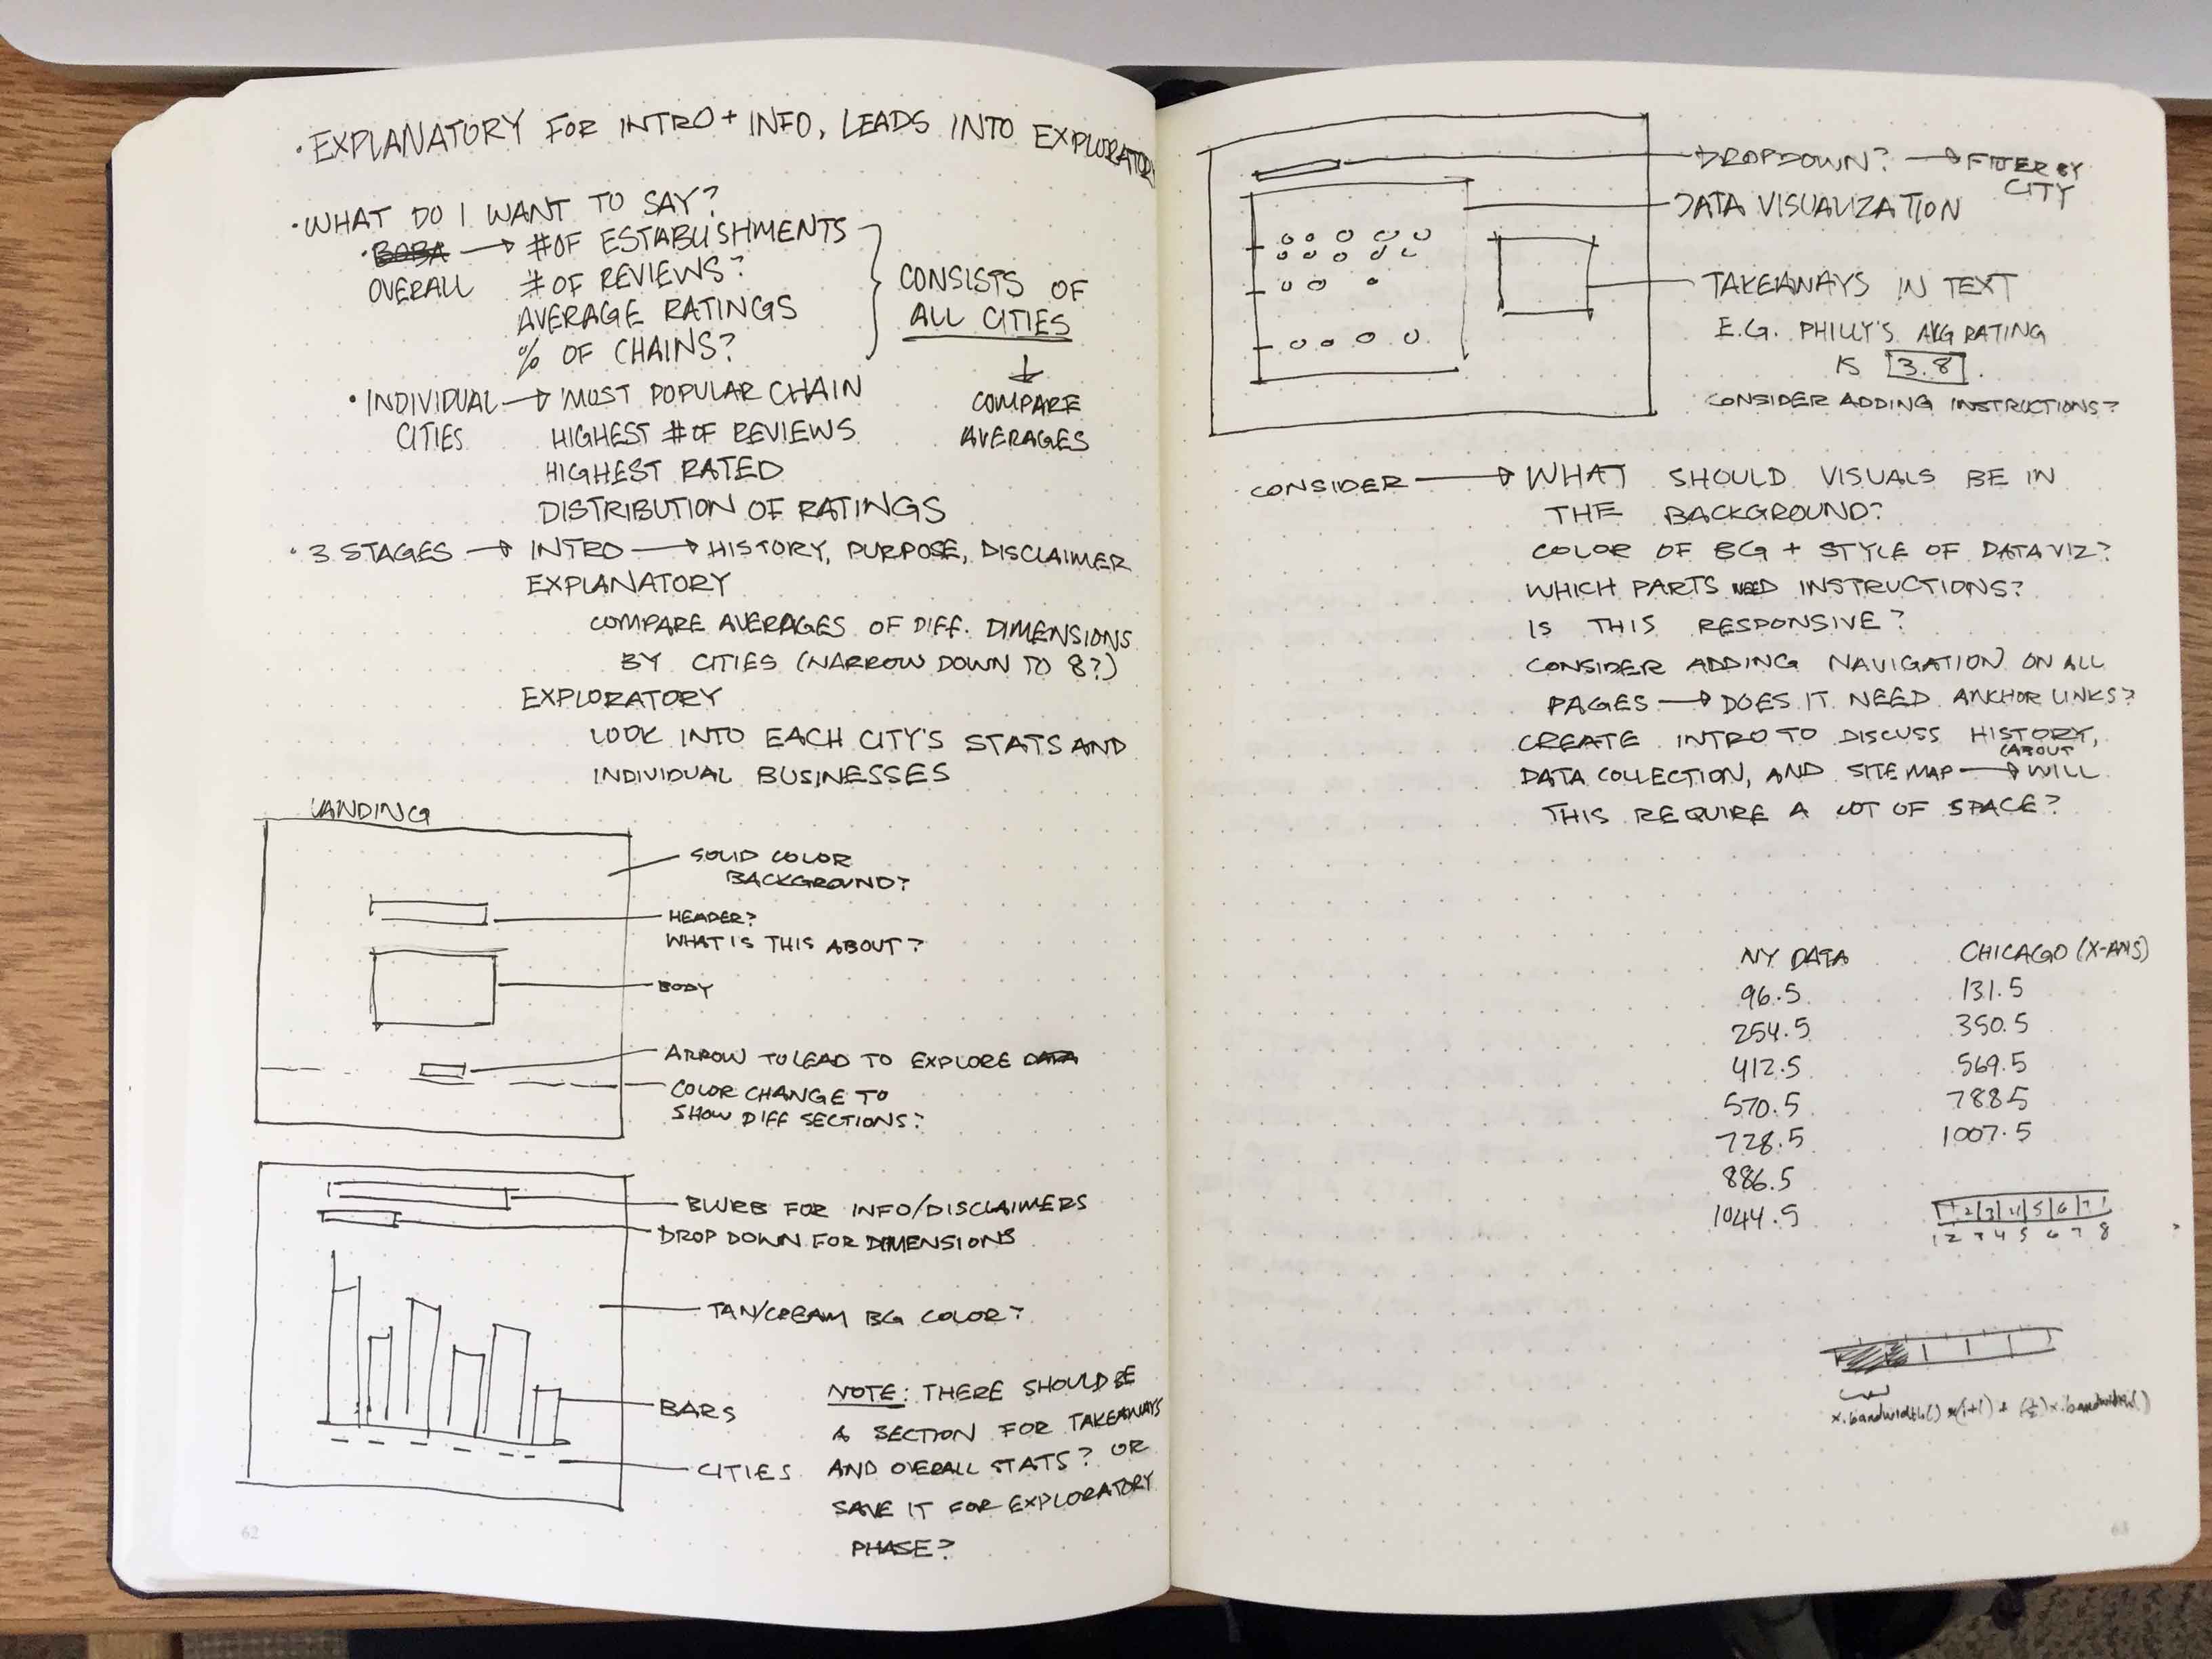 · EXPLANATORY FOR INTRO + INFO, LEADS INTO EXPLORATORY
· WHAT DO I WANT TO SAY?
· BOBA → # OF ESTABLISHMENTS
OVERALL # OF REVIEWS?
AVERAGE RATINGS
% OF CHAINS?
CONSISTS OF
ALL CITIES
↓
COMPARE
AVERAGES
· INDIVIDUAL → MOST POPULAR CHAIN
CITIES HIGHEST # OF REVIEWS
HIGHEST RATED
DISTRIBUTION OF RATINGS
· 3 STAGES → INTRO → HISTORY, PURPOSE, DISCLAIMER
EXPLANATORY
COMPARE AVERAGES OF DIFF. DIMENSIONS
BY CITIES (NARROW DOWN TO 8?)
EXPLORATORY
LOOK INTO EACH CITY'S STATS AND
INDIVIDUAL BUSINESSES
LANDING
SOLID COLOR
BACKGROUND?
HEADER?
WHAT IS THIS ABOUT?
BODY
ARROW TO LEAD TO EXPLORE DATA
COLOR CHANGE TO
SHOW DIFF SECTIONS?
BLURB FOR INFO/DISCLAIMERS
DROP DOWN FOR DIMENSIONS
TAN/CREAM BG COLOR?
BARS
CITIES
NOTE: THERE SHOULD BE
A SECTION FOR TAKEAWAYS
AND OVERALL STATS? OR
SAVE IT FOR EXPLORATORY
PHASE?
62
DROPDOWN? → FILTER BY
CITY
DATA VISUALIZATION
TAKEAWAYS IN TEXT
E.G. PHILLY'S AVG RATING
IS 3.8.
CONSIDER ADDING INSTRUCTIONS?
CONSIDER → WHAT SHOULD VISUALS BE IN
THE BACKGROUND?
COLOR OF BG + STYLE OF DATA VIZ?
WHICH PARTS NEED INSTRUCTIONS?
IS THIS RESPONSIVE?
CONSIDER ADDING NAVIGATION ON ALL
PAGES → DOES IT NEED ANCHOR LINKS?
CREATE INTRO TO DISCUSS HISTORY,
(ABOUT
DATA COLLECTION, AND SITE MAP → WILL
THIS REQUIRE A LOT OF SPACE?
NY DATA CHICAGO (X-AXIS)
96.5 131.5
254.5 350.5
412.5 569.5
570.5 788.5
728.5 1007.5
886.5
1044.5
1 2 3 4 5 6 7
1 2 3 4 5 6 7 8
x.bandwidth() *(i+1) + (½)x.bandwidth()
63